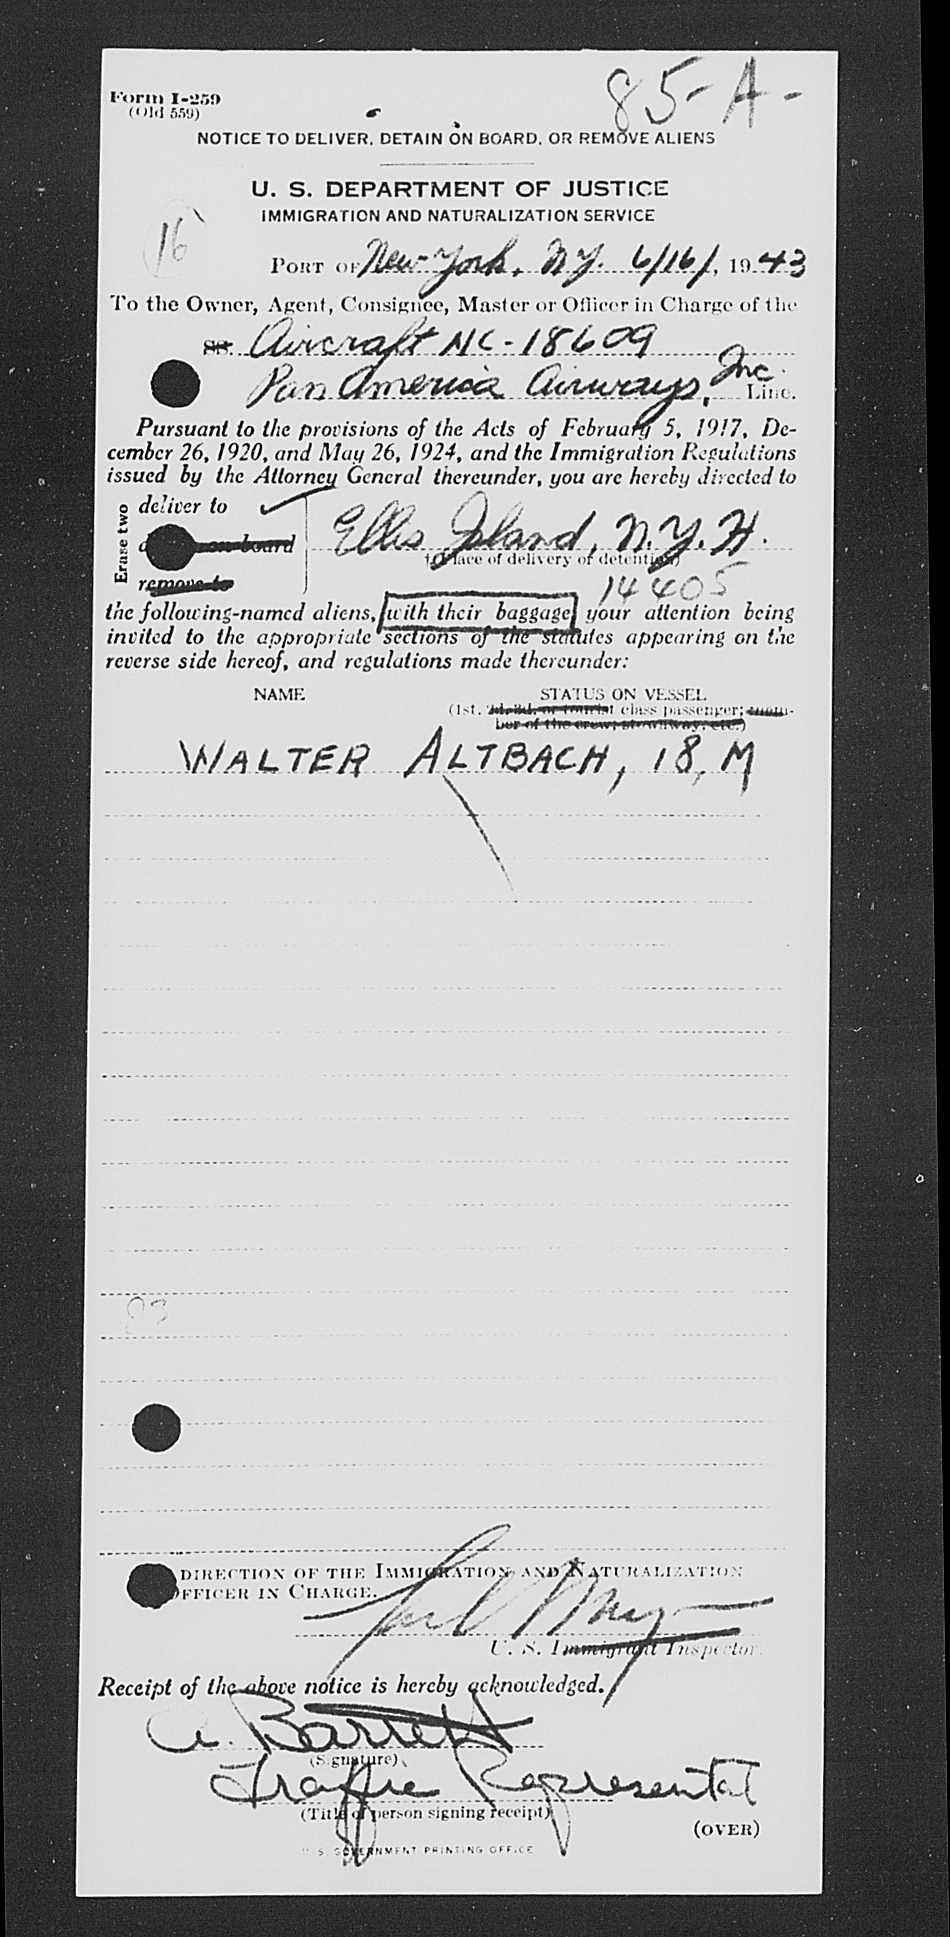 Form I-259
(Old 559)
85-A-
NOTICE TO DELIVER, DETAIN ON BOARD, OR REMOVE ALIENS
U. S. DEPARTMENT OF JUSTICE
IMMIGRATION AND NATURALIZATION SERVICE
16
PORT OF New York, NY. 6/16/, 1943
To the Owner, Agent, Consignee, Master or Officer in Charge of the
SS. Aircraft NC-18609
Pan America Airways, Inc. Line.
Pursuant to the provisions of the Acts of February 5, 1917, De-
cember 26, 1920, and May 26, 1924, and the Immigration Regulations
issued by the Attorney General thereunder, you are hereby directed to
Erase two
deliver to
on board Ellis Island, N.Y.H.
(Place of delivery or detention)
remove to
14405
the following-named aliens, with their baggage, your attention being
invited to the appropriate sections of the statutes appearing on the
reverse side hereof, and regulations made thereunder:
NAME STATUS ON VESSEL
(1st, 2d, 3d, or tourist class passenger; mem-
ber of the crew; stowaway; etc.)
WALTER ALTBACH, 18, M
DIRECTION OF THE IMMIGRATION AND NATURALIZATION
OFFICER IN CHARGE.
U. S. Immigrant Inspector.
Receipt of the above notice is hereby acknowledged.
A. Barrett
(Signature)
Traffic Representat
(Title of person signing receipt)
(OVER)
U. S. GOVERNMENT PRINTING OFFICE